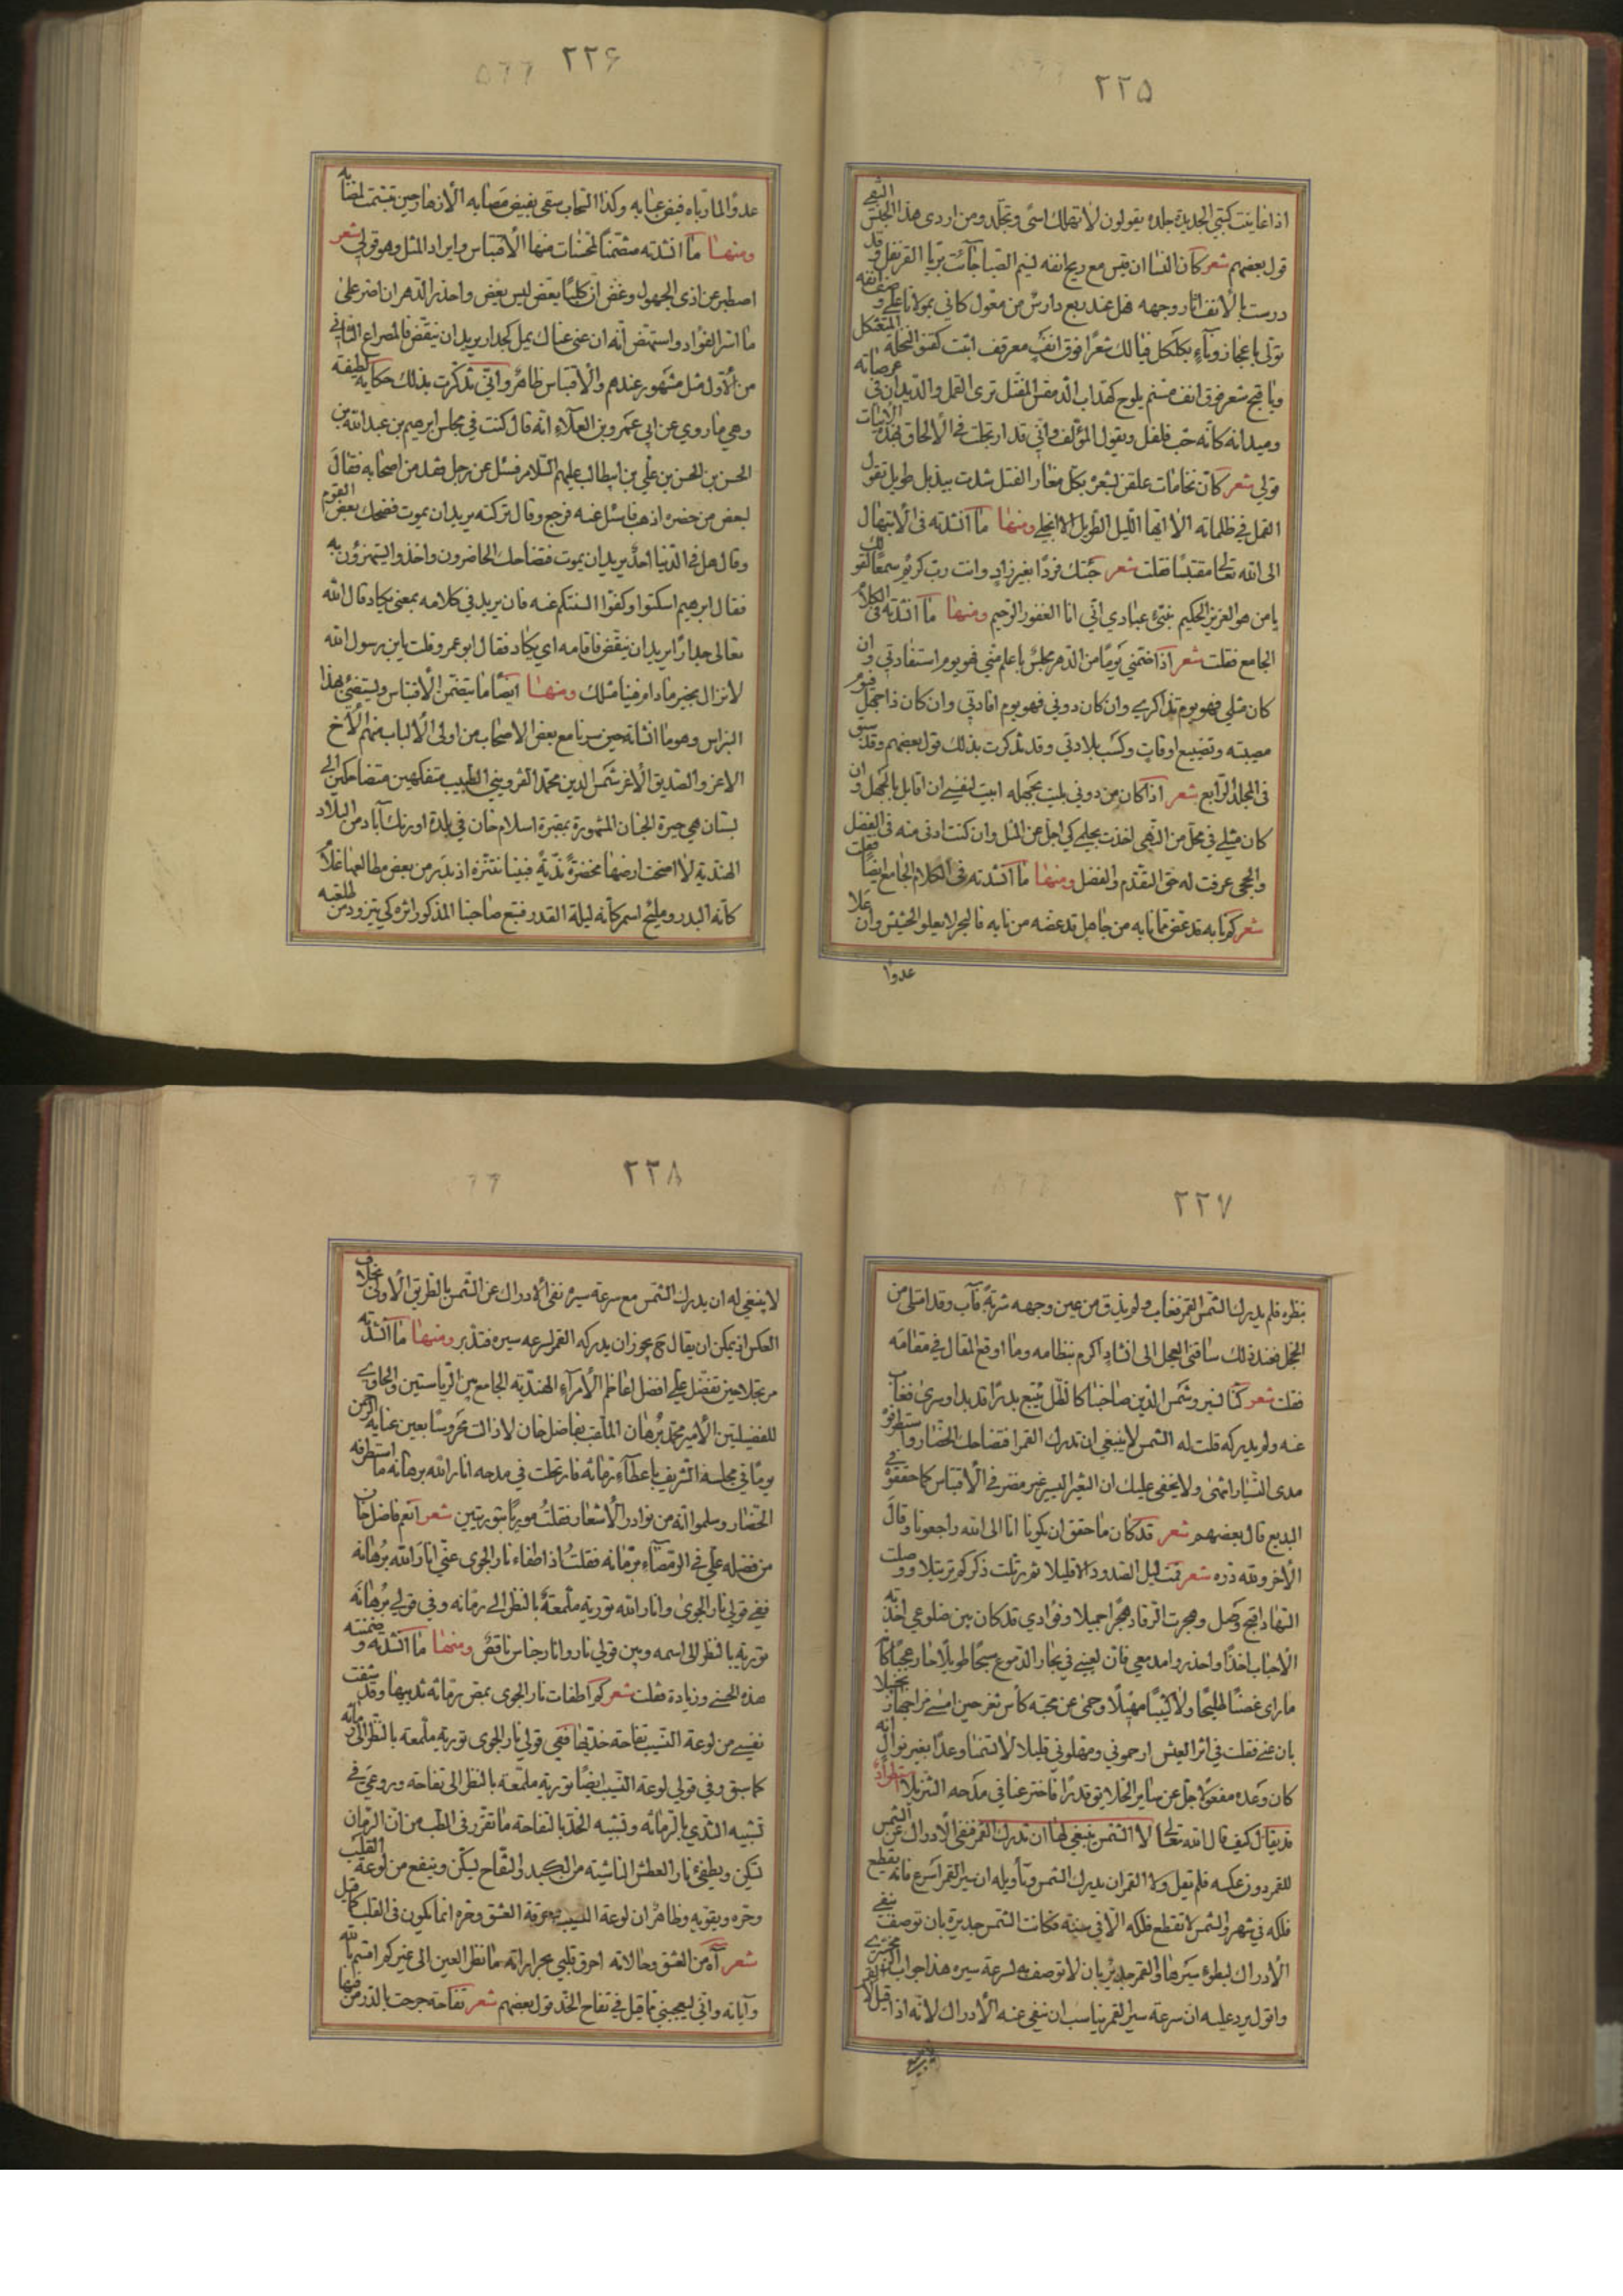 ٢٢٥
اذا عاينت كتبتي الجديدة جلده يقولون لا تهلك اسى وتجلد ومن اردى هذا الجنس
قول بعضهم شعر كان النسا ان قيس مع ريح انفه نسيم الصبا جاءت بريا القرنفل وقد
درست بالانف اثار وجهه فهل عند ربع دارس من معول كاني بمولانا على وصف انفه
تولى باعجاز وناء بكلكل فيا لك شعرا فوق انف معرقف اثيت كقنو النخلة المتعثكل
ويا قبح شعر فوق انف مسنم يلوح كهداب الدمقس المفتل ترى القمل والديدان في عرصاته
وميدانه كانه حب فلفل ويقول المؤلف واني قد ارتجلت في الالحاق بهذه الابيات
قولي شعر كان نخامات علقن بشعره بكل مغار الفتل شدت بيذبل طويل تقول
القمل في ظلماته الا ايها الليل الطويل الا انجلي ومنها ما انشدته في الابتهال
الى الله تعالى مقتبسا فقلت شعر جئتك فردا بغير زاد وانت رب كريم سمعا لقولك
يا من هو العزيز الحكيم نبئ عبادي اني انا الغفور الرحيم ومنها ما انشدته في الكلام
الجامع فقلت شعر اذا ضمني يوما من الدهر مجلس باعلم مني فهو يوم استفادتي وان
كان مثلي فهو يوم تذاكري وان كان دوني فهو يوم افادتي وان كان ذا جهل فيوم
مصيبته وتضييع اوقات وكسب بلادتي وقد تذكرت بذلك قول بعضهم وقد سبق
في المجلد الرابع شعر اذا كان من دوني بليت بجهله ابيت لنفسي ان اقابل بالجهل وان
كان مثلي في محل من النهى اخذت بحلمي كي اجل عن المثل وان كنت ادنى منه في الفضل
والحجى عرفت له حق التقدم والفضل ومنها ما انشدته في الكلام الجامع ايضا فقلت
شعر كم نابه قد غض مما نابه من جاهل قد عضه من نابه فالبحر لا يعلو الحشيش وان علا
عدوا
٢٢۶
عدوا لما ارتباه فيض عبابه وكذا السحاب سقى بفيض مصابه الازهار حين تبسمت لمصابه
ومنها ما انشدته متضمنا لمحسنات منها الاقتباس وايراد المثل وهو قولي شعر
اصطبر عن اذى الجهول وغض ان كلبا بعض ليس بعيض واحذر الدهر ان اصر على
ما اشر الفؤاد واستمض انه ان عنى عناك يميل كجدار يريد ان ينقض فالمصراع الثاني
من الاول مثل مشهور عندهم والاقتباس ظاهر واني تذكرت بذلك حكاية لطيفة
وهي ما روي عن ابي عمرو بن العلاء انه قال كنت في مجلس ابرهيم بن عبد الله بن
الحسن بن الحسن بن علي بن ابيطالب عليهم السلام فسئل عن رجل فقد من اصحابه فقال
لبعض من حضره اذهب فاسئل عنه فرجع وقال تركته يريد ان يموت فضحك بعض القوم
وقال هل في الدنيا احد يريد ان يموت فتضاحك الحاضرون واخذوا يستهزؤن به
فقال ابرهيم اسكتوا وكفوا السنتكم عنه فان يريد في كلامه بمعنى يكاد قال الله
تعالى جدارا يريد ان ينقض فاقامه اي يكاد فقال ابو عمرو قلت يابن رسول الله
لا نزال بخير ما دام فينا مثلك ومنها ايضا ما يتضمن الاقتباس ويستضئ بهذا
النبراس وهو ما انشاته حين سرنا مع بعض الاصحاب من اولى الالباب منهم الاخ
الاعز والصديق الاغر شمس الدين محمد القزويني الطبيب متفكهين متضاحكين الى
بستان هي حيرة الجنان المشهورة بمقبرة اسلام خان في بلدة اورنك آباد من البلاد
الهندية لا اضحت ارضها مخضرة ندية فبينا نتنزه اذ بدر من بعض مطالعها غلام
كانه البدر ومليح اسمر كانه ليلة القدر فتبع صاحبنا المذكور اثره كي يتزود من طلعته
٢٢٧
بنظره فلم يدرك الشمس القمر فغاب ولم يذق من عين وجهه شربة فآب وقد امتلى من
الخجل فعند ذلك ساقنى العجل الى انشاد اكرم بنظامه وما اوقع المقال في مقامه
فقلت شعر كنا نسير وشمس الدين صاحبنا كالظل يتبع بدرا قد بدا وسرى فغاب
عنه ولم يدركه قلت له الشمس لا ينبغي ان تدرك القمرا فتضاحك الحضار واستطرفوا
مدى السيارانتهى ولا يخفى عليك ان التغير اليسير غير مضر في الاقتباس كما حققوه في
البديع قال بعضهم شعر قد كان ما خفت ان يكونا انا الى الله راجعونا وقال
الاخر ولله دره شعر قمت ليل الصدود الا قليلا ثم رتلت ذكركم ترتيلا ووصلت
السهاد اقبح وصل وهجرت الرقاد هجرا جميلا وفؤادي قد كان بين ضلوعي اخذته
الاحباب اخذا واحذروا مدمعي فان لعيني في بحار الدموع سبحا طويلا حار عجبا كل
ما راى غصنا مليحا ولا كثيبا مهيلا وحمى عن محبه كاس ثغر حين امسى مزاجها زنجبيلا
بان عني فقلت في اثر العيس ارحموني ومهلوني قليلا لا تنمنا وعدا بغير نوال انه
كان وعده مفعولا جل عن ساير الخلايق قدرا فاخترعنا في مدحه التنزيلا استطراد
قد يقال كيف قال الله تعالى لا الشمس ينبغي لها ان تدرك القمر فنفى الادراك عن الشمس
للقمر دون عكسه فلم تقل ولا القمر ان يدرك الشمس وتاويله ان سير القمر اسرع فانه يقطع
فلكه في شهر والشمس لا تقطع فلكه الا في سنة فكانت الشمس جديرة بان توصف بنفي
الادراك لبطوء سيرها والقمر جدير بان لا توصف به لسرعة سيره هذا جواب الزمخشري
واقول يرد عليه ان سرعة سير القمر يناسب ان ينفى عنه الادراك لانه اذا قيل القمر
٢٢٨
لا ينبغي له ان يدرك الشمس مع سرعة سيره نفى الادراك عن الشمس بالطريق الاولى بخلاف
العكس اذ يمكن ان يقال ح يجوز ان يدركه القمر لسرعه سيره فتدبر ومنها ما انشدته
مرتجلا حين تفضل علي افضل اعاظم الامراء الهندية الجامع بين الرياستين والحاوي
للفضيلتين الامير محمد برهان الملقب بفاضل خان لا زالت محروسا بعين عناية الرحمن
يوما في مجلسه الشريف باعطاء رمانه فارتجلت في مدحه انار الله برهانه ما استطرفه
الحضار وسلموا انه من نوادر الاشعار فقلت موريا بتوريتين شعر انعم فاضل خان
من فضله علي في الرمضاء برمانه فقلت اذ اطفاء نار الجوى عني انار الله برهانه
ففي قولي نار الجوى وانار الله تورية ملمعة بالنظر الى رمانه وفي قولي برهانه
تورية بالنظر الى اسمه وبين قولي نار وانار جناس ناقص ومنها ما انشدته وضمنته
هذه الحسنى وزيادة فقلت شعر كم اطفات نار الجوى بمص رمانه ثدييها وقد شفت
نفسي من لوعة النسيب تفاحة خديها ففي قولي نار الجوى تورية ملمعة بالنظر الى رمانه
كما سبق وفي قولي لوعة النسيب ايضا تورية ملمعة بالنظر الى تفاحة وروعي في
تشبيه الثدي بالرمانه وتشبيه الخد بالتفاحة ما تقرر في الطب من ان الرمان
يسكن ويطفئ نار العطش الناشية من الكبد والتفاح يسكن وينفع من لوعة القلب
وحره ويقويه وظاهر ان لوعة النسيب وحرقة العشق وحره انما يكون في القلب كما قيل
شعر آه من العشق وحالاته احرق قلبي بحراراته ما نظر العين الى غيركم اقسم بالله
وآياته واني ليعجبني ما قيل في تفاح الخد قول بعضهم شعر تفاحة جرحت بالدر من فيها